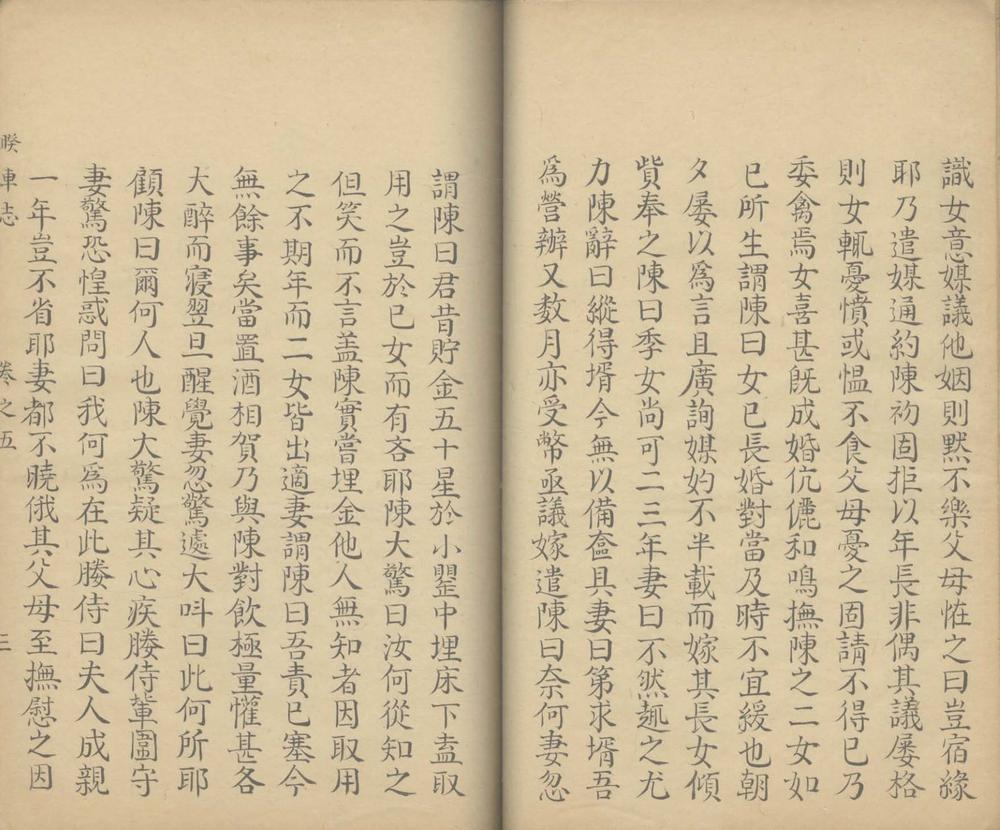 識女意媒議他姻則黙不樂父母恠之曰豈宿緣
耶乃遣媒通約陳初固拒以年長非偶其議屡格
則女輒憂憤或愠不食父母憂之固請不得已乃
委禽焉女喜甚旣成婚伉儷和鳴撫陳之二女如
已所生謂陳曰女已長婚對當及時不宜緩也朝
夕屡以爲言且廣詢媒妁不半載而嫁其長女傾
貲奉之陳曰季女尚可二三年妻曰不然趣之尤
力陳辭曰縱得壻今無以備奩具妻曰第求壻吾
爲營辦又数月亦受幣亟議嫁遣陳曰奈何妻忽
謂陳曰君昔貯金五十星於小罌中埋床下盍取
用之豈於已女而有吝耶陳大驚曰汝何從知之
但笑而不言盖陳實嘗埋金他人無知者因取用
之不期年而二女皆出適妻謂陳曰吾責已塞今
無餘事矣當置酒相賀乃與陳對飲極量懽甚各
大醉而寢翌旦醒覺妻忽驚遽大呌曰此何所耶
顧陳曰爾何人也陳大驚疑其心疾媵侍輩圍守
妻驚恐惶惑問曰我何爲在此媵侍曰夫人成親
一年豈不省耶妻都不曉俄其父母至撫慰之因
睽車志 卷之五 三